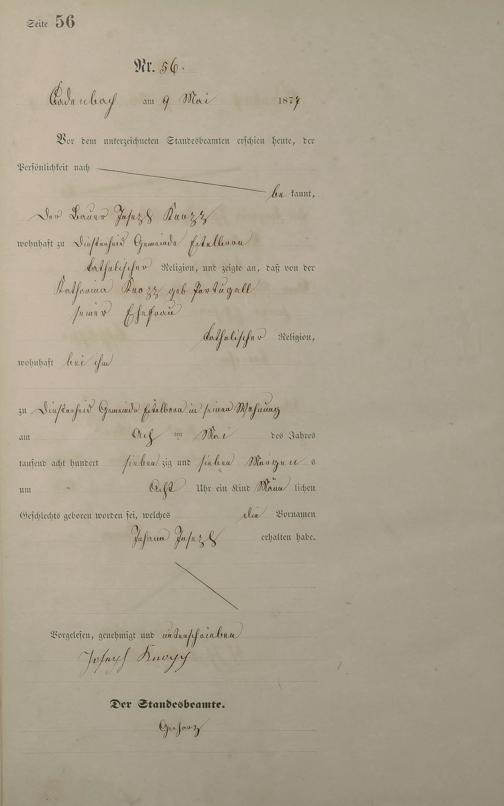 Seite 56
Nr. 56.
Cadenbach am 9 Mai 1877
Vor dem unterzeichneten Standesbeamten erschien heute, der
Persönlichkeit nach
be kannt,
Der Bauer Josef Knopp
wohnhaft zu Gemeinde Eitelborn
katholischer Religion, und zeigte an, daß von der
Katharina Knopp geb Portugall
seiner Ehefrau
katholischer Religion,
wohnhaft bei ihm
zu Gemeinde Eitelborn in seiner Wohnung
am Ach ten Mai des Jahres
tausend acht hundert sieben zig und sieben Morgen s
um Acht Uhr ein Kind Männ lichen
Geschlechts geboren worden sei, welches die Vornamen
Johann Josef erhalten habe.
Vorgelesen, genehmigt und unterschrieben
Joseph Knopp
Der Standesbeamte.